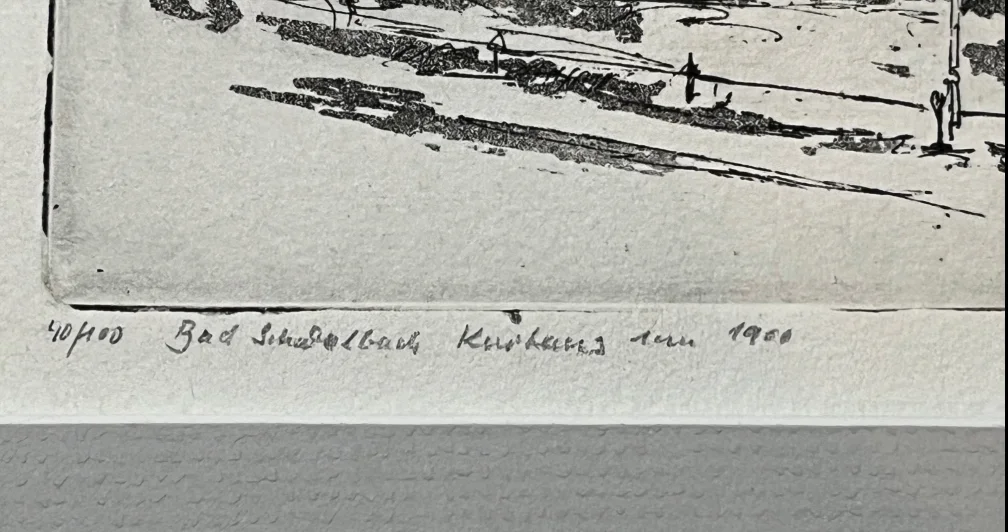 40/100 Bad Schwalbach Kurhaus um 1900